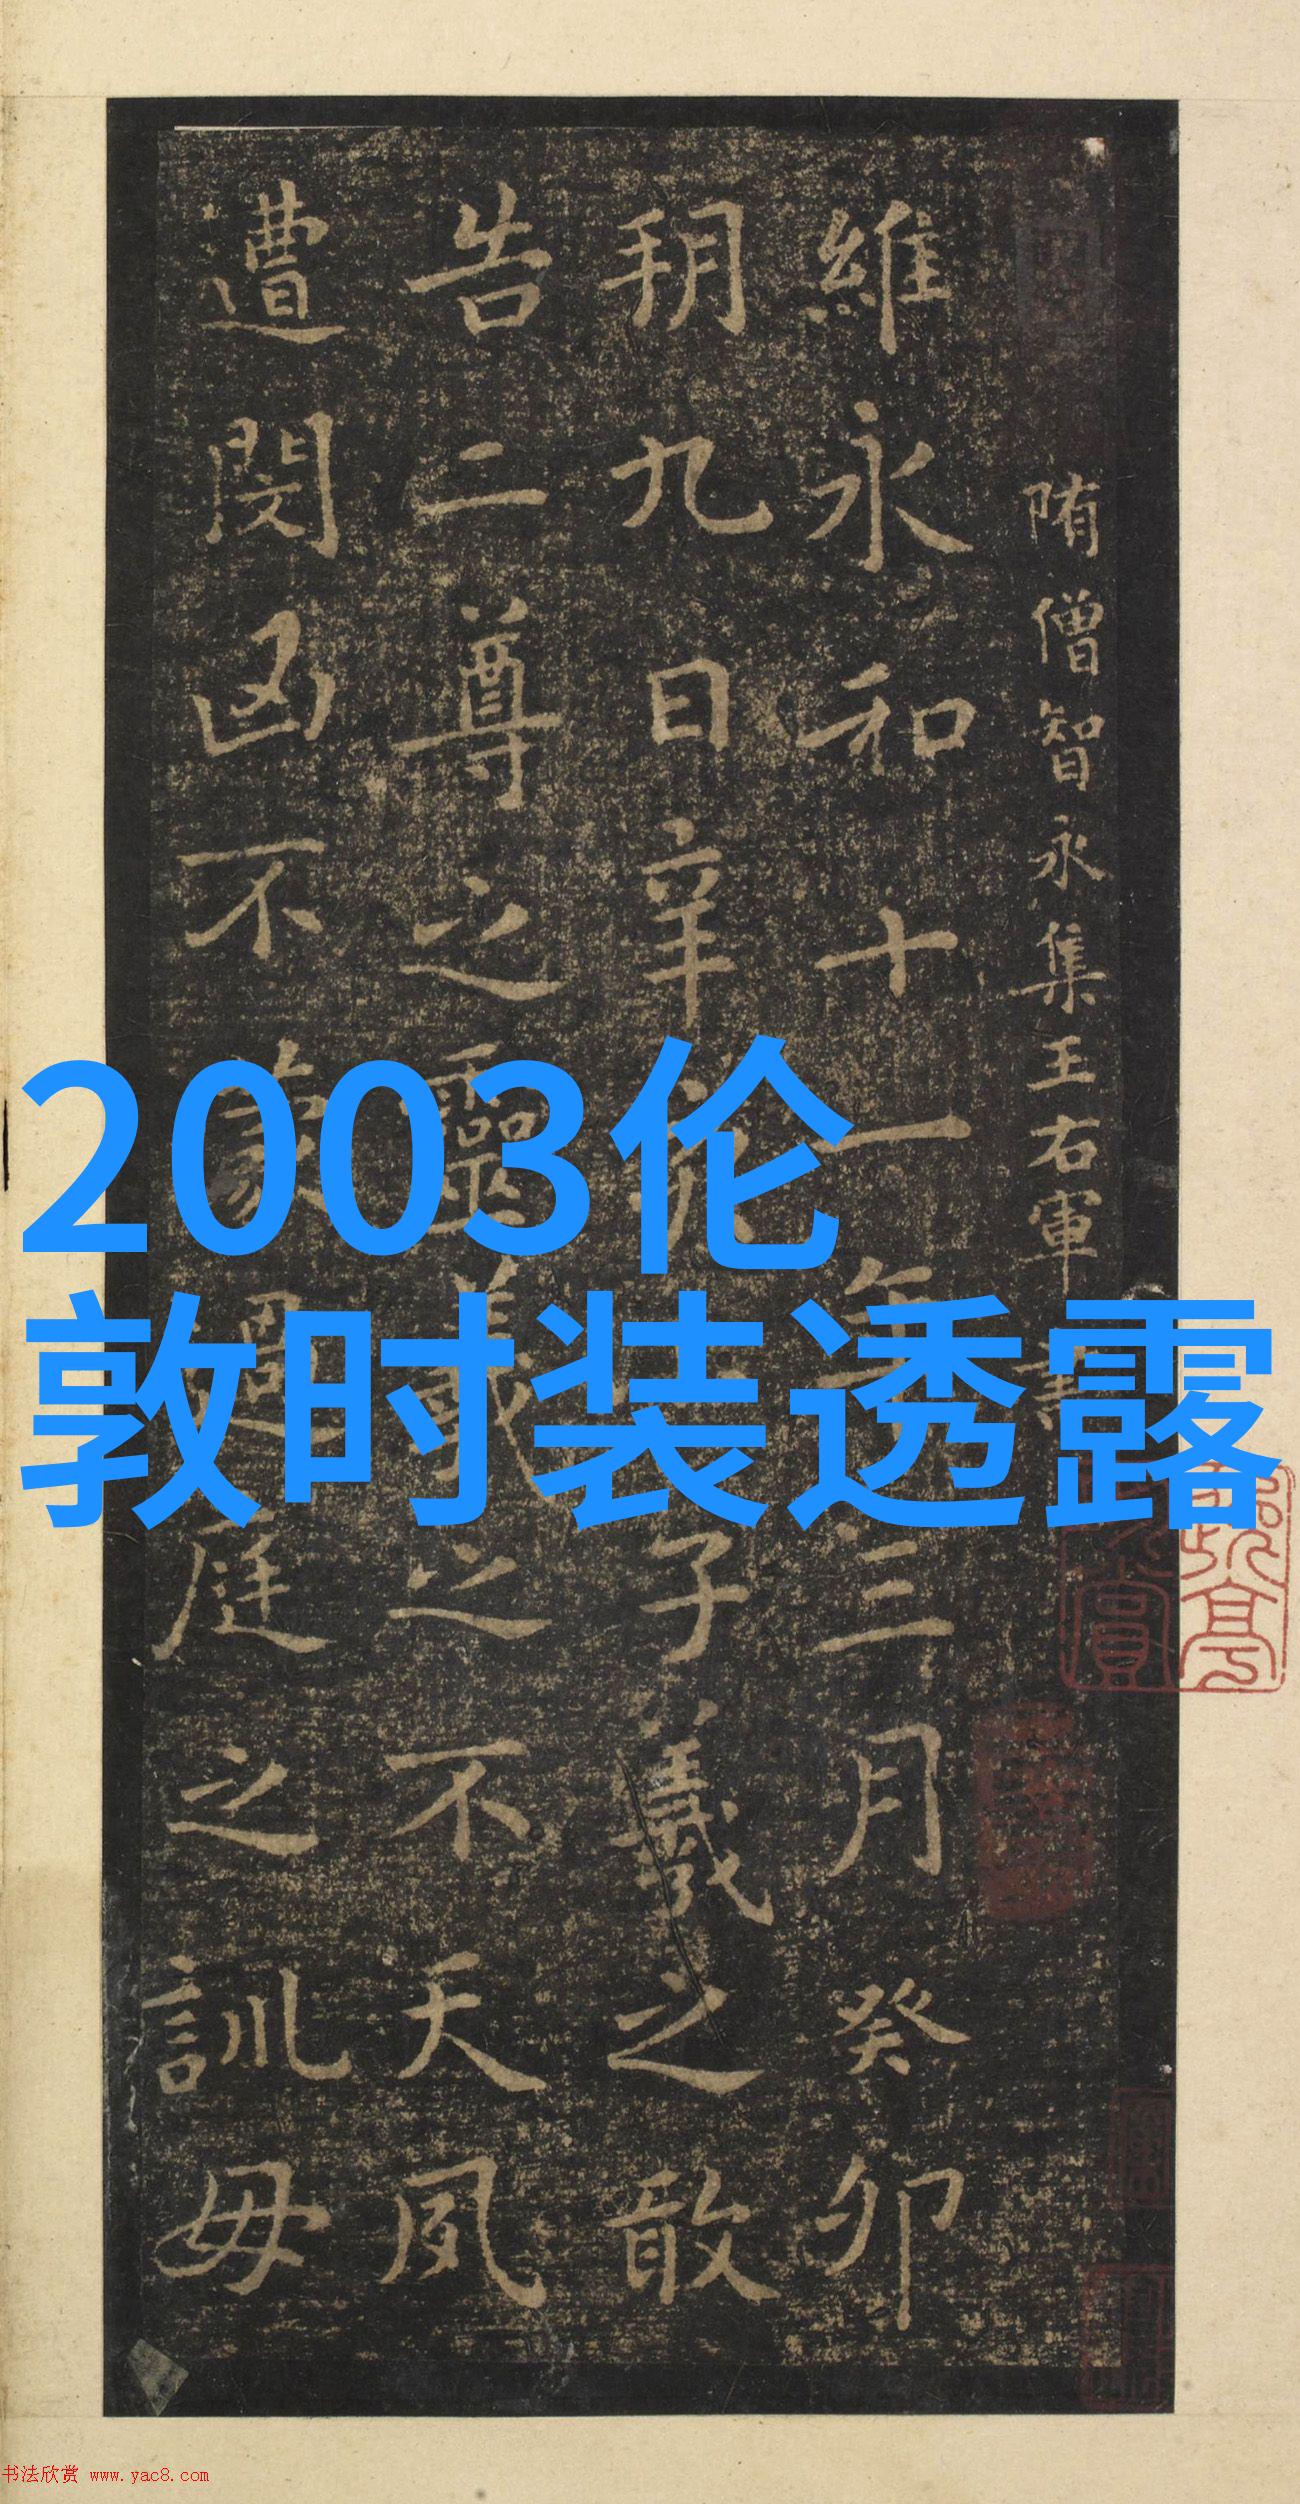 隋僧智永集王右軍書
維永和十一年三月癸卯
朔九日辛亥子羲之敢
告二尊之靈羲之不天夙
遭閔凶不蒙過庭之訓毋
2003伦
敦时装透露
书法欣赏 www.yac8.com